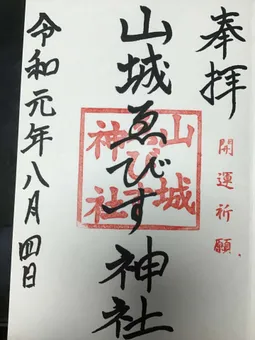 奉拝
開運祈願
山城ゑびす神社
山城
ゑびす
神社
令和元年八月四日